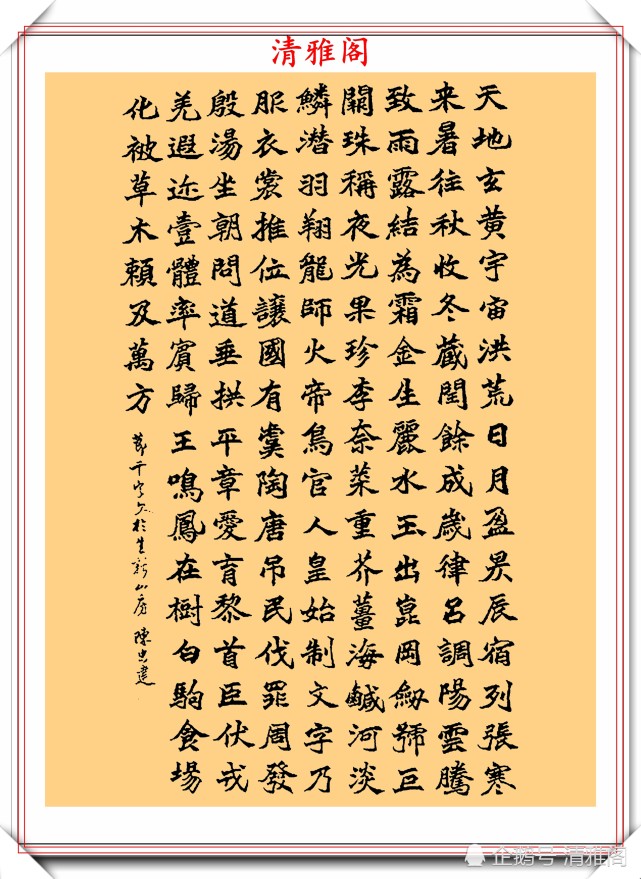 清雅阁
天地玄黄宇宙洪荒日月盈昃辰宿列張寒
来暑往秋收冬藏閏餘成歲律吕調陽雲騰
致雨露結為霜金生麗水玉出崑岡劒號巨
闕珠稱夜光果珍李奈菜重芥薑海鹹河淡
鱗潜羽翔龍師火帝鳥官人皇始制文字乃
服衣裳推位讓國有虞陶唐吊民伐罪周發
殷湯坐朝問道垂拱平章愛育黎首臣伏戎
羌遐迩壹體率賓歸王鳴鳳在樹白駒食場
化被草木賴及萬方
千字文於生新山房 陳忠建
企鹅号 清雅阁